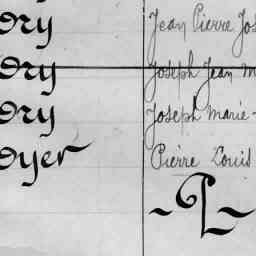 ory Jean Pierre Jos
ory Joseph Jean M
ory Joseph Marie -
oyer Pierre Louis
~ P ~